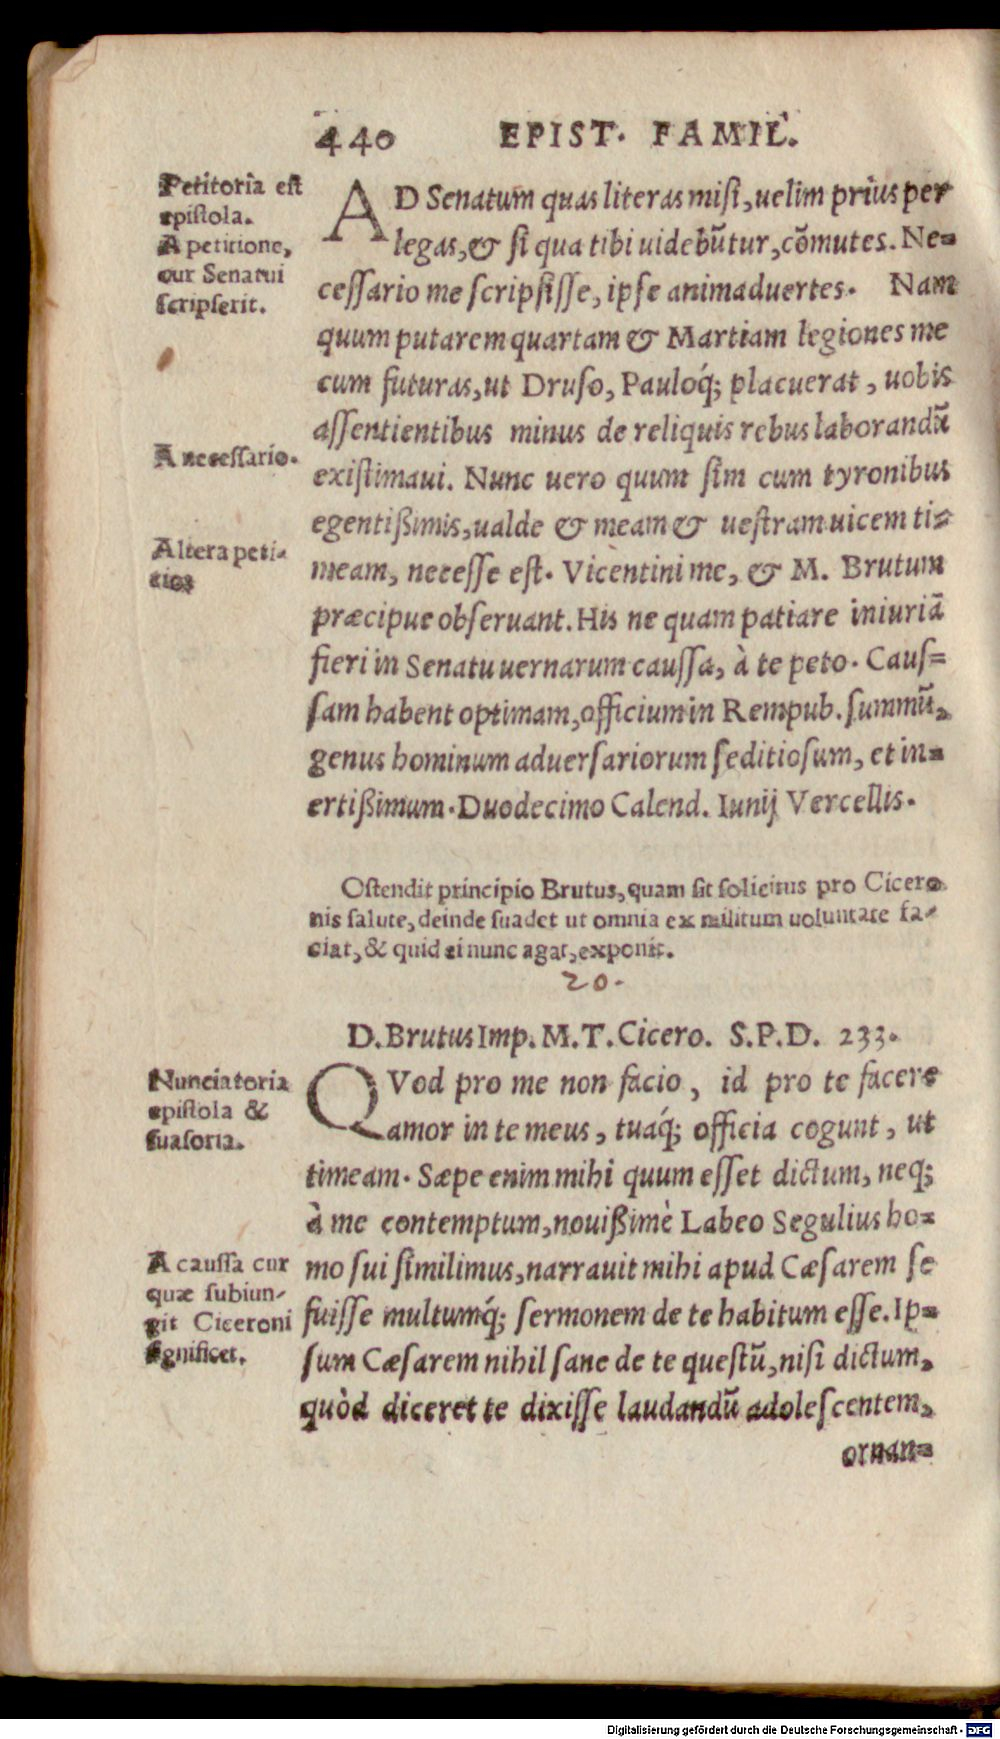 440 EPIST. FAMIL.
Petitoria est
epistola.
A petitione,
cur Senatui
scripserit.
AD Senatum quas literas misi, uelim prius per
legas, & si qua tibi uidebũtur, cõmutes. Ne-
cessario me scripsisse, ipse animaduertes. Nam
quum putarem quartam & Martiam legiones me
cum futuras, ut Druso, Pauloq́; placuerat, uobis
assentientibus minus de reliquis rebus laborandũ
A necessario.
existimaui. Nunc uero quum sim cum tyronibus
egentißimis, ualde & meam & uestram uicem ti-
Altera peti-
tio.
meam, necesse est. Vicentini me, & M. Brutum
præcipue obseruant. His ne quam patiare iniuriã
fieri in Senatu uernarum caussa, à te peto. Caus-
sam habent optimam, officium in Rempub. summũ,
genus hominum aduersariorum seditiosum, et in-
ertißimum. Duodecimo Calend. Iunij Vercellis.
Ostendit principio Brutus, quam sit solicitus pro Cicero
nis salute, deinde suadet ut omnia ex militum uoluntate fa-
ciat, & quid ei nunc agat, exponit.
20.
D. Brutus Imp. M. T. Cicero. S. P. D. 233.
Nunciatoria
epistola &
suasoria.
QVod pro me non facio, id pro te facere
amor in te meus, tuaq́; officia cogunt, ut
timeam. Sæpe enim mihi quum esset dictum, neq;
à me contemptum, nouißimè Labeo Segulius ho-
A caussa cur
quæ subiun-
git Ciceroni
significet.
mo sui similimus, narrauit mihi apud Cæsarem se
fuisse multumq́; sermonem de te habitum esse. Ip-
sum Cæsarem nihil sane de te questũ, nisi dictum,
quòd diceret te dixisse laudandũ adolescentem,
ornan-
Digitalisierung gefördert durch die Deutsche Forschungsgemeinschaft - DFG